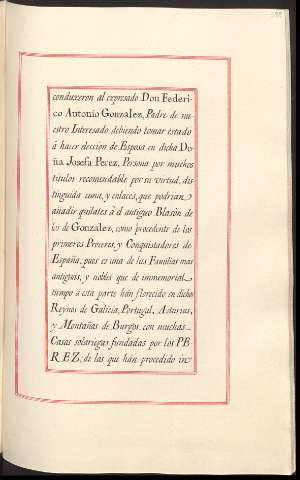 conduxeron al expresado Don Federi-
co Antonio Gonzalez, Padre de nu-
estro Interesado debiendo tomar estado
á hacer eleccion de Esposa en dicha Do-
ña Josefa Perez, Persona por muchos
titulos recomendable por su virtud, dis-
tinguida cuna, y enlaces, que podrian
añadir quilates à el antiguo Blasòn de
los de Gonzalez, como procedente de los
primeros Proceres, y Conquistadores de
España, pues es una de las Familias mas
antiguas, y nobles que de immemorial
tiempo à esta parte hán florecido en dicho
Reynos de Galicia, Portugal, Asturias,
y Montañas de Burgos, con muchas
Casas solariegas fundadas por los PE-
REZ; de las que hán procedido in-